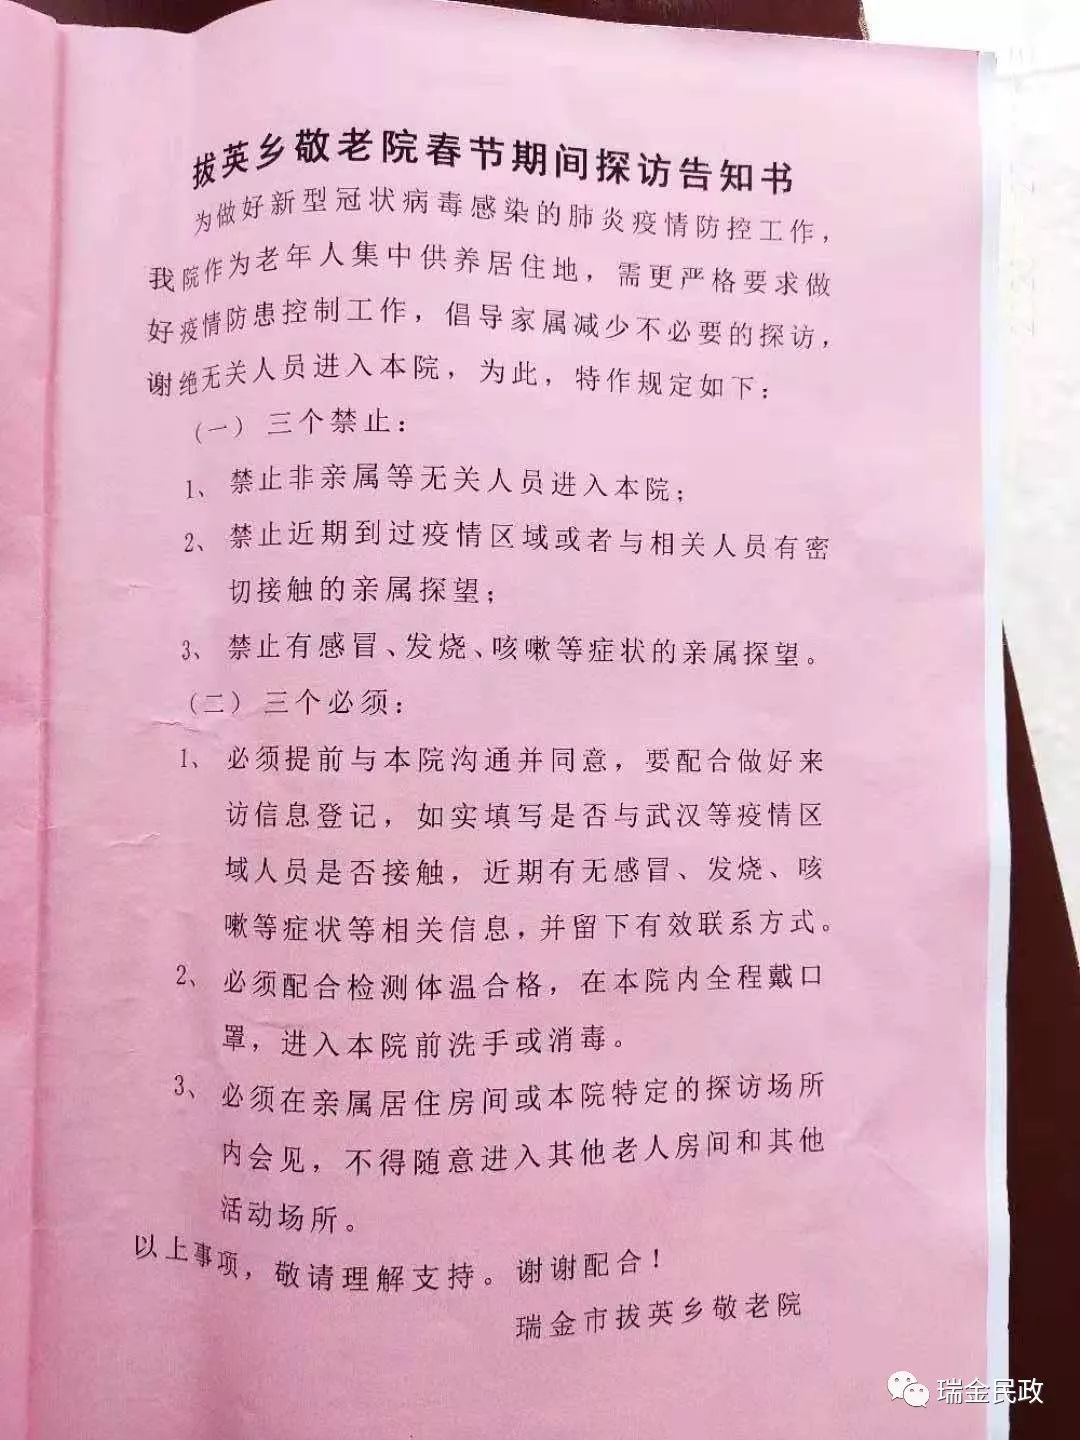 拔英乡敬老院春节期间探访告知书
为做好新型冠状病毒感染的肺炎疫情防控工作，
我院作为老年人集中供养居住地，需更严格要求做
好疫情防患控制工作，倡导家属减少不必要的探访，
谢绝无关人员进入本院，为此，特作规定如下：
（一）三个禁止：
1、禁止非亲属等无关人员进入本院；
2、禁止近期到过疫情区域或者与相关人员有密
切接触的亲属探望；
3、禁止有感冒、发烧、咳嗽等症状的亲属探望。
（二）三个必须：
1、必须提前与本院沟通并同意，要配合做好来
访信息登记，如实填写是否与武汉等疫情区
域人员是否接触，近期有无感冒、发烧、咳
嗽等症状等相关信息，并留下有效联系方式。
2、必须配合检测体温合格，在本院内全程戴口
罩，进入本院前洗手或消毒。
3、必须在亲属居住房间或本院特定的探访场所
内会见，不得随意进入其他老人房间和其他
活动场所。
以上事项，敬请理解支持。谢谢配合！
瑞金市拔英乡敬老院
瑞金民政